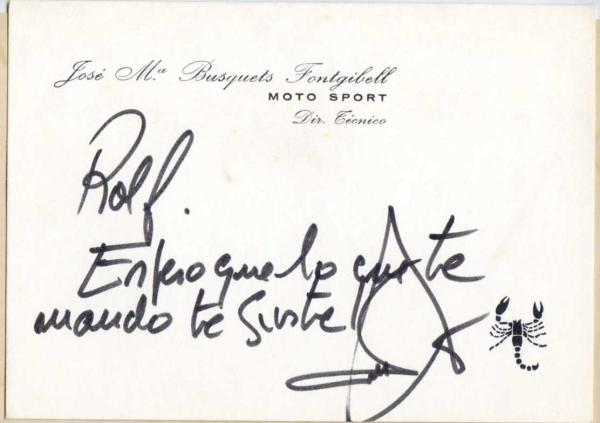 José M.ª Busquets Fontgibell
MOTO SPORT
Dir. Técnico
Rolf.
Espero que lo que te
mando te guste